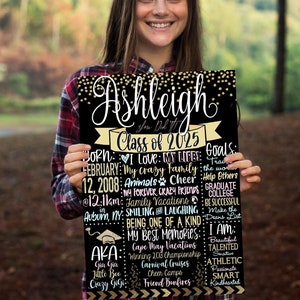 Ashleigh
You Did It!
Class of 2025
BORN:
FEBRUARY
12, 2008
@12:11am
Auburn, NY
AKA:
Gia Gia
Little Boo
Crazy GiGi
I Love: MY LIFE
My Crazy Family
Animals Cheer
MY FOREVER CRAZY FRIENDS
Family Vacations
SMILING and LAUGHING
BEING ONE OF A KIND
MY BEST MEMORIES:
Cape May Vacations
Winning 2018 Championship
Carnival Cruises
Cheer Camps
Friend Bonfires
Goals:
the
Help Others
GRADUATE
COLLEGE
BE SUCCESSFUL
Make the
Deans List
I AM:
Beautiful
TALENTED
Smarter
ATHLETIC
Passionate
SMART
Kindhearted